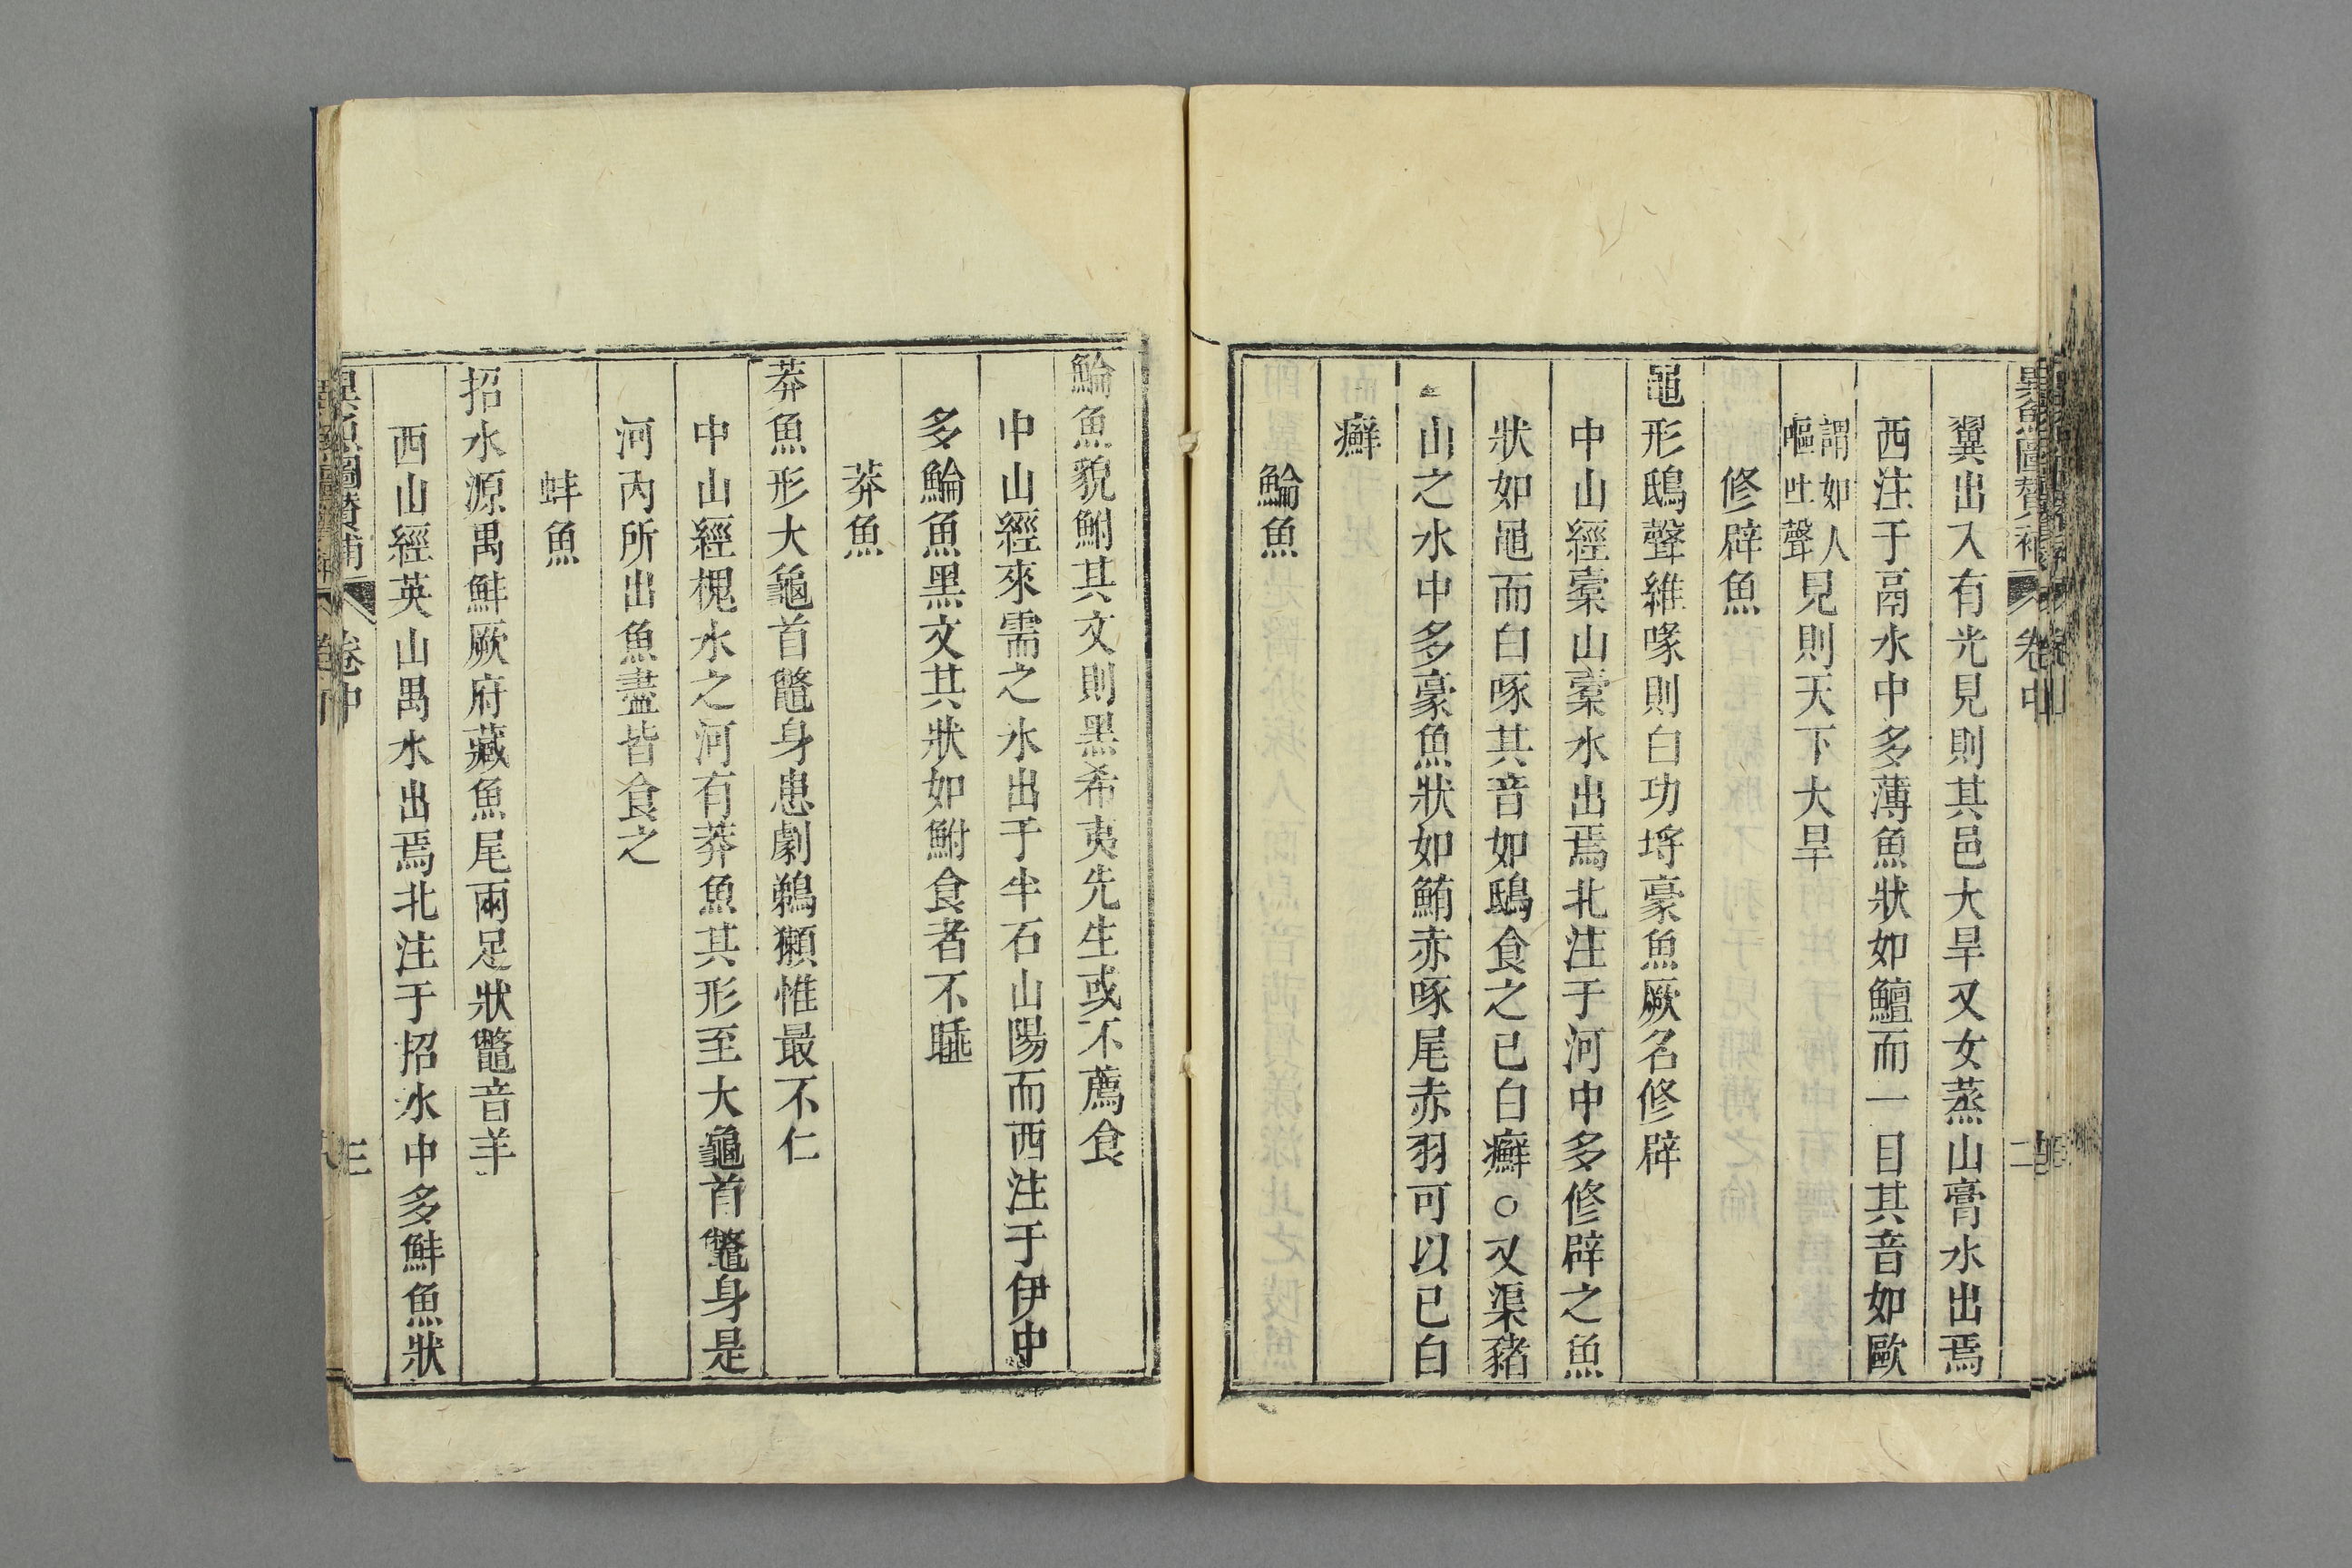 翼出入有光見則其邑大旱又女蒸山膏水出焉
西注于鬲水中多薄魚狀如鱣而一目其音如歐
謂如人
嘔吐聲見則天下大旱
修辟魚
黽形鴟聲維喙則白功埒豪魚厥名修辟
中山經橐山橐水出焉北注于河中多修辟之魚
狀如黽而白啄其音如鴟食之已白癬○又渠豬
山之水中多豪魚狀如鮪赤啄尾赤羽可以已白
癬
鯩魚
鯩魚貌鮒其文則黑希夷先生或不薦食
中山經來需之水出于半石山陽而西注于伊中
多鯩魚黑文其狀如鮒食者不睡
莽魚
莽魚形大龜首鼈身患劇鵜獺惟最不仁
中山經槐水之河有莽魚其形至大龜首鼈身是
河內所出魚盡皆食之
蚌魚
招水源禺鮭厥府藏魚尾兩足狀鼈音羊
西山經英山禺水出焉北注于招水中多鮭魚狀
異魚圖贊補
卷中
三